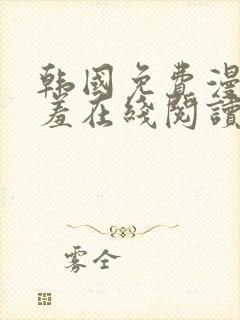 韩国免费漫
羞在线阅读
雾仝